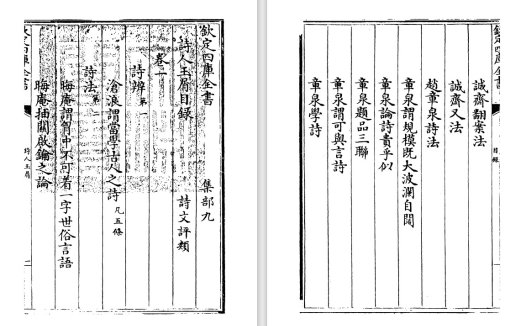 欽定四庫全書 集部九
詩人玉屑目錄 詩文評類
卷一
詩辨第一
滄浪謂當學古人之詩 凡五條
詩法第二
晦庵謂胷中不可着一字世俗言語
晦庵抽關啟鑰之論
詩人玉屑
欽定四庫全書
目錄
誠齋翻案法
誠齋又法
趙章泉詩法
章泉謂規模既大波瀾自闊
章泉論詩貴乎似
章泉題品三聯
章泉謂可與言詩
章泉學詩